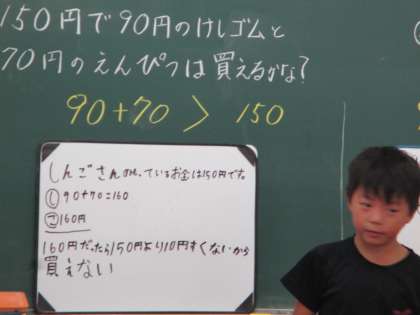 150円で90円のけしゴムと
70円のえんぴつは買えるかな?
90+70 > 150
しんごさんのもっているお金は150円です。
し 90+70=160
こ 160円
160円だったら150円より10円すくないから
買えない